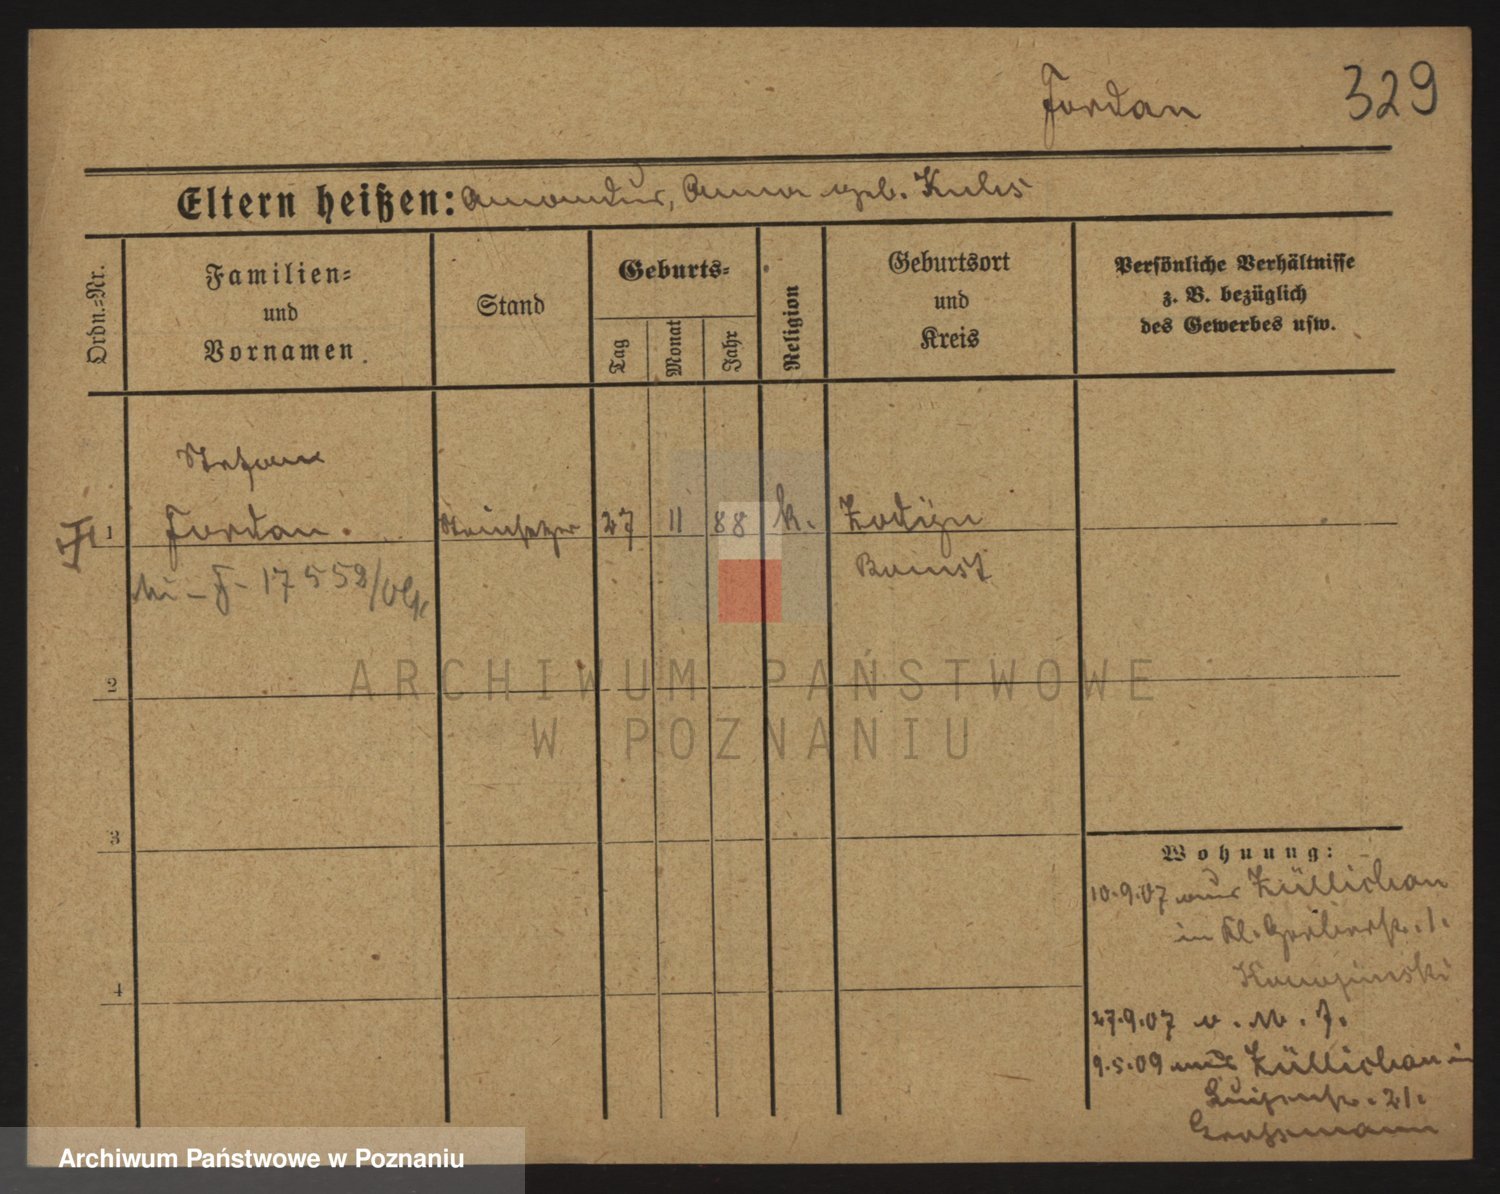 Jordan 329
Eltern heißen: Amandus, Anna geb. Kuhs
Ordn.=Nr.
Familien=
und
Vornamen
Stand
Geburts=
Tag
Monat
Jahr
Religion
Geburtsort
und
Kreis
Persönliche Verhältnisse
z. B. bezüglich
des Gewerbes usw.
Stefan
1 Jordan. Steinsetzer 27 11 88 k.
Bomst
17552/
2
3
4
Wohnung:
10.9.07 aus Züllichau
in Kl. Gerberstr. 1.
27.9.07
9.5.09 aus Züllichau in
Luisenstr. 21.
Grossmann
ARCHIWUM PAŃSTWOWE
W POZNANIU
Archiwum Państwowe w Poznaniu